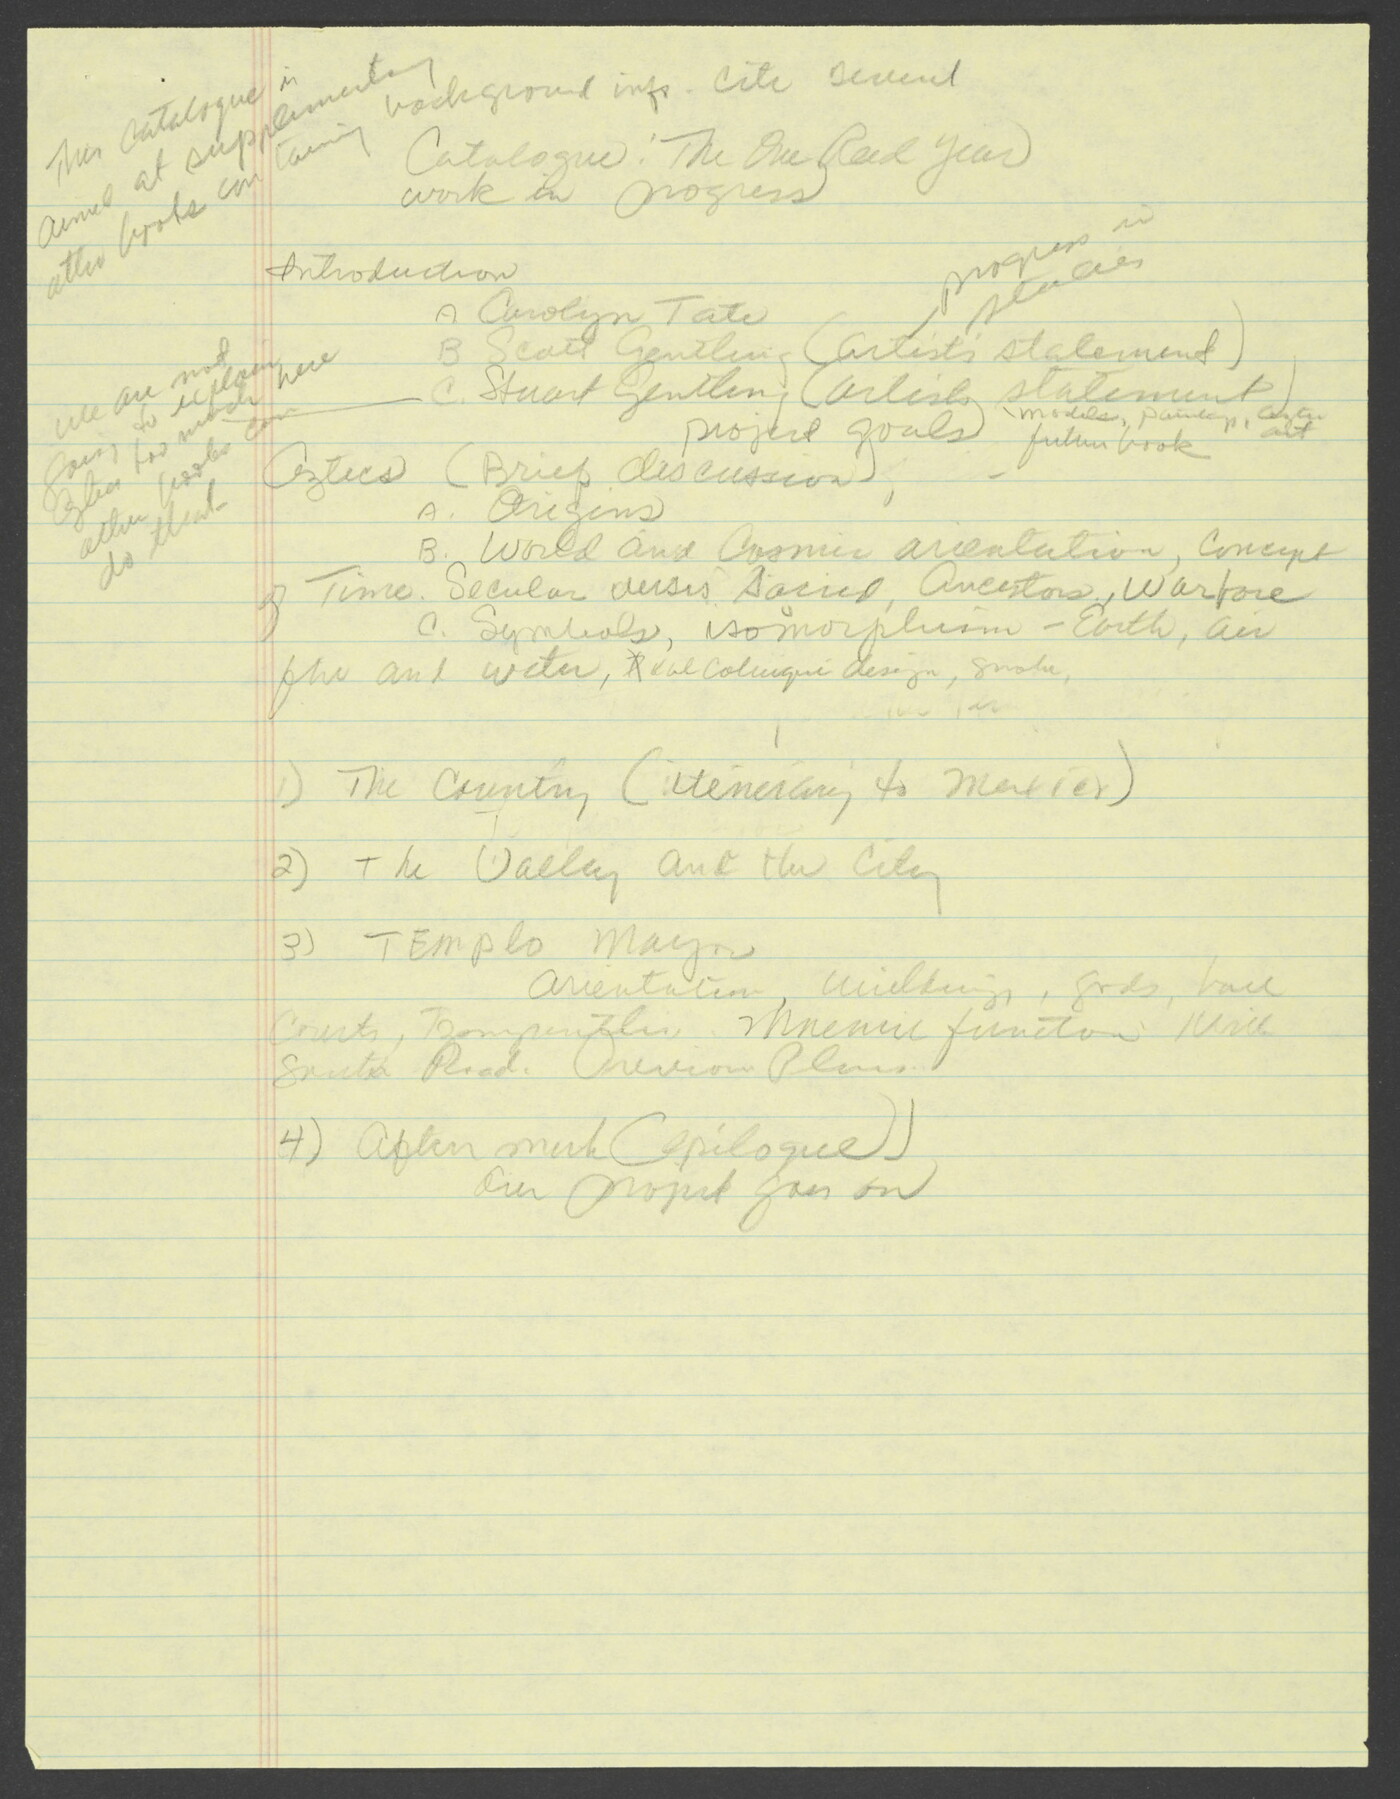 This Catalogue is
aimed at supplementing
other books containing background info. Cite several
Catalogue: The One Reed Year
work in progress
Introduction
progress in
studies
A Carolyn Tate
B Scott Gentling (artist's statement)
C. Stuart Gentling (artists statement)
project goals models, paintings, Aztec art
future book
we are not
going to explain
Aztecs too much here
other books can
do that
Aztecs (Brief discussion),
A. Origins
B. World and Cosmic orientation, Concept
of Time. Secular versis Sacred, Ancestors, Warfare
C. Symbols, isomorphism - Earth, air
fire and water, design, smoke,
1) The Country (itinerary to Mexico)
2) The Valley and the City
3) TEmplo Mayor
orientation, buildings, gods, ball
Courts, Tzompantli. Mnemic function
South Road. Previous Plans.
4) Aftermath (epilogue)
Our project goes on